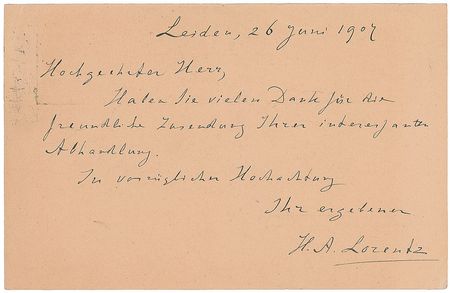 Leiden, 26 Juni 1907
Hochgeehrter Herr,
Haben Sie vielen Dank für die
freundliche Zusendung Ihrer interessanten
Abhandlung.
In vorzüglicher Hochachtung
Ihr ergebener
H. A. Lorentz